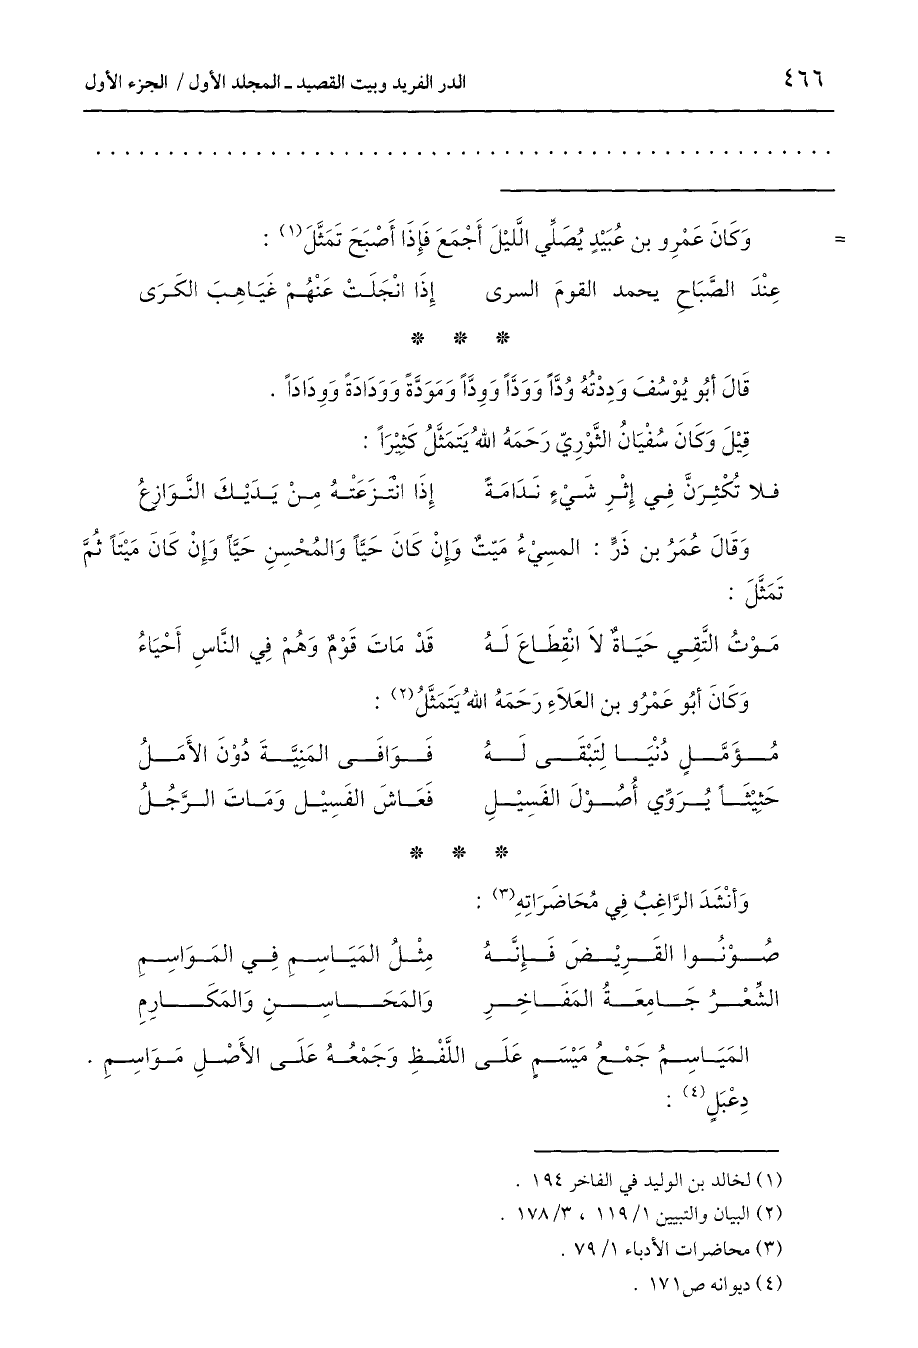 ٤٦٦ الدر الفريد وبيت القصيد ـ المجلد الأول / الجزء الأول
= وَكَانَ عَمْرو بن عُبَيْدٍ يُصَلِّي اللَّيْلَ أَجْمَعَ فَإِذَا أَصْبَحَ تَمَثَّلَ(١) :
عِنْدَ الصَّبَاحِ يحمد القومَ السرى إِذَا انْجَلَتْ عَنْهُمْ غَيَاهِبَ الكَرَى
* * *
قَالَ أَبُو يُوْسُفَ وَدِدْتُهُ وُدَّاً وَوَدَّاً وَوِدَّاً وَمَوَدَّةً وَوَدَادَةً وَوِدَادَاً .
قِيْلَ وَكَانَ سُفْيَانُ الثَّوْرِيّ رَحَمَهُ اللهُ يَتَمَثَّلُ كَثِيْرَاً :
فلا تُكْثِرَنَّ فِي إِثْرِ شَيْءٍ نَدَامَةً إِذَا انْتَزَعَتْهُ مِنْ يَدَيْكَ النَّوَازِعُ
وَقَالَ عُمَرُ بن ذَرٍّ : المسِيْءُ مَيّتٌ وَإِنْ كَانَ حَيَّاً وَالمُحْسِن حَيَّاً وَإِنْ كَانَ مَيْتَاً ثُمَّ
تَمَثَّلَ :
مَوْتُ التَّقِي حَيَاةٌ لاَ انْقِطَاعَ لَهُ قَدْ مَاتَ قَوْمٌ وَهُمْ فِي النَّاسِ أَحْيَاءُ
وَكَانَ أَبُو عَمْرُو بن العَلاَءِ رَحَمَهُ اللهُ يَتَمَثَّلُ(٢) :
مُؤَمَّلٍ دُنْيَا لِتَبْقَى لَهُ فَوَافَى المَنِيَّةَ دُوْنَ الأَمَلُ
حَثِيْثَاً يُرَوِّي أُصُوْلَ الفَسِيْلِ فَعَاشَ الفَسِيْل وَمَاتَ الرَّجُلُ
* * *
وَأَنْشَدَ الرَّاغِبُ فِي مُحَاضَرَاتِهِ(٣) :
صُوْنُوا القَرِيْضَ فَإِنَّهُ مِثْلُ المَيَاسِمِ فِي المَوَاسِمِ
الشِّعْرُ جَامِعَةُ المَفَاخِرِ وَالمَحَاسِنِ وَالمَكَارِمِ
المَيَاسِمُ جَمْعُ مَيْسَمٍ عَلَى اللَّفْظِ وَجَمْعُهُ عَلَى الأَصْلِ مَوَاسِمِ .
دِعْبَلٍ(٤) :
(١) لخالد بن الوليد في الفاخر ١٩٤ .
(٢) البيان والتبيين ١/ ١١٩ ، ٣/ ١٧٨ .
(٣) محاضرات الأدباء ١/ ٧٩ .
(٤) ديوانه ص١٧١ .